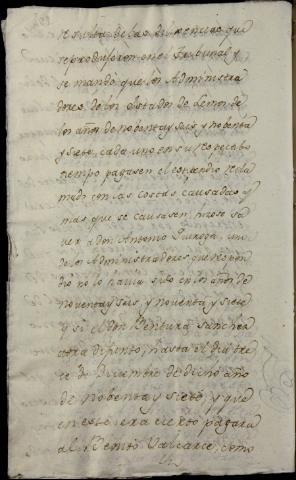 resulta de las dilixencias que
se produjeron en el Tribunal y
se mandó que los Administra
dores de los Estados de Lemos de
los años de nobenta y seis y nobenta
y siete, cada uno en su respectibo
tiempo pagasen el estipendio recla
mado con las costas causadas y
mas que se causasen, hizose sa
ver a don Antonio Quiroga, uno
de los Administradores que respon
dió no lo havia sido en los años de
noventa y seis, y noventa y siete
y si el don Bentura Sanchez
ahora difunto, hasta el dia tre
ce de Diciembre de dicho año
de nobenta y siete, y que
en este era cierto pagara
al Benito Valcarce, como